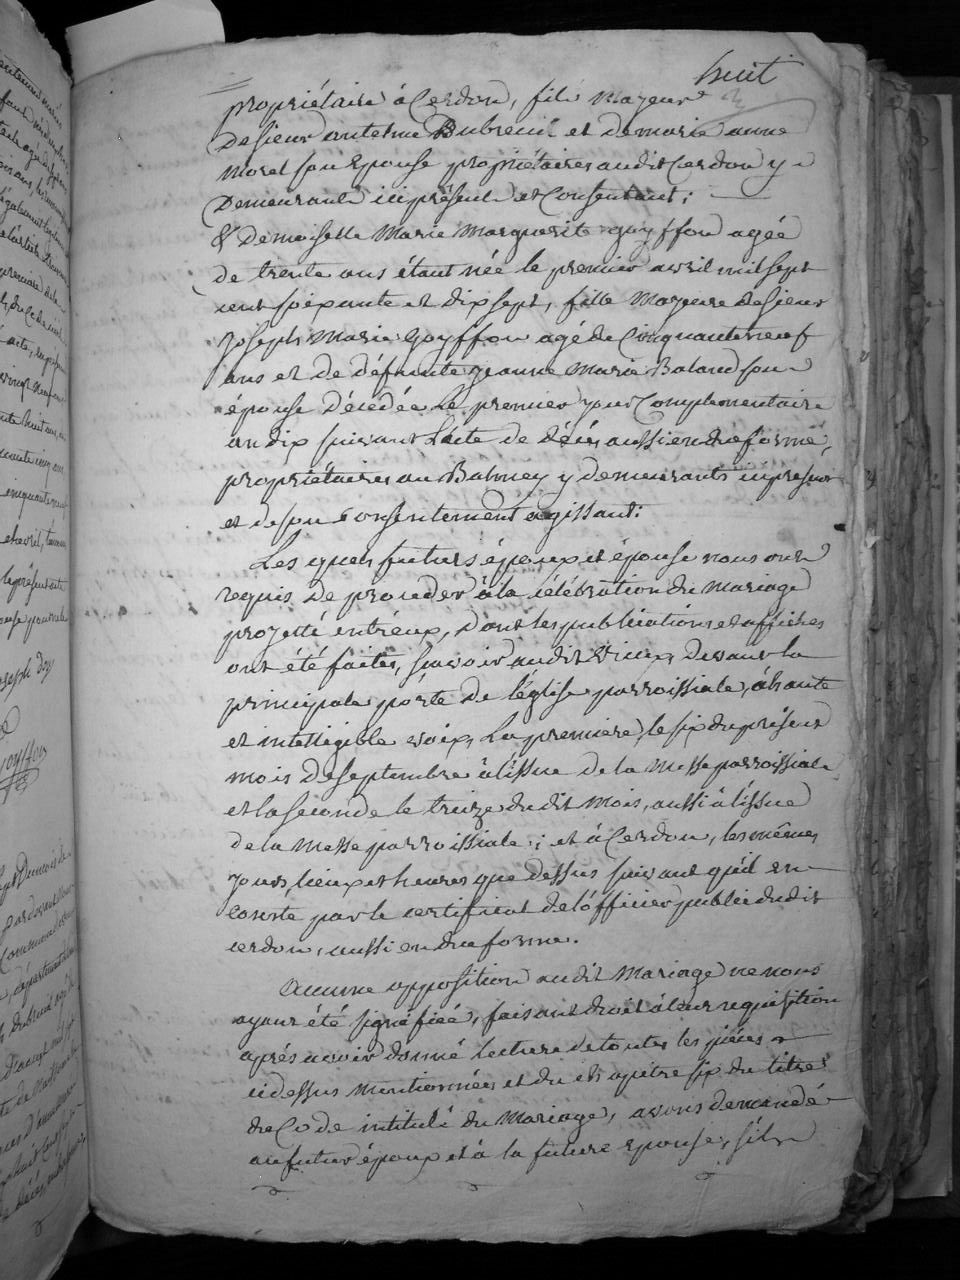 huit
propriétaire à Cerdon, fils majeur
de sieur antelme Dubreuil et de marie anne
morel son Epouse propriétaires audit Cerdon y
Demeurants ici présents et Consentants;
& Demoiselle Marie Marguerite guyffon agée
de trente ans étant née le premier avril mil sept
cent soixante et dix sept, fille Majeure de sieur
Joseph Marie Goyffon agé de Cinquante neuf
ans et de défunte jeanne Marie Baland son
épouse décédée Le premier jour Complementaire
an dix suivant L'acte de décès aussi en due forme,
propriétaires au y demeurants ici présent
et de son Consentement agissant:
Les quels futurs époux et épouse nous ont
requis De proceder à la célébration du Mariage
projetté entr'eux, dont les publications et affiches
ont été faites, savoir audit Vieux, devant la
principale porte de l'église parroissiale, à haute
et intelligible voix, La premiere, le six du présent
mois de septembre à l'issue de la Messe parroissiale
et la seconde le treize dudit Mois, aussi à l'issue
de la Messe parroissiale; et à Cerdon, les mêmes
jours, lieux et heures que dessus suivant qu'il en
conste par le certificat de l'officier public dudit
cerdon, aussi en due forme.
Aucune opposition audit Mariage ne nous
ayant été signifiée, faisant droit à leur requisition
après avoir donné lecture de toutes les pièces
ci dessus mentionnées et du chapitre six du titre
du Code intitulé du Mariage, avons demandé
au futur époux et à la future Epouse, s'ils